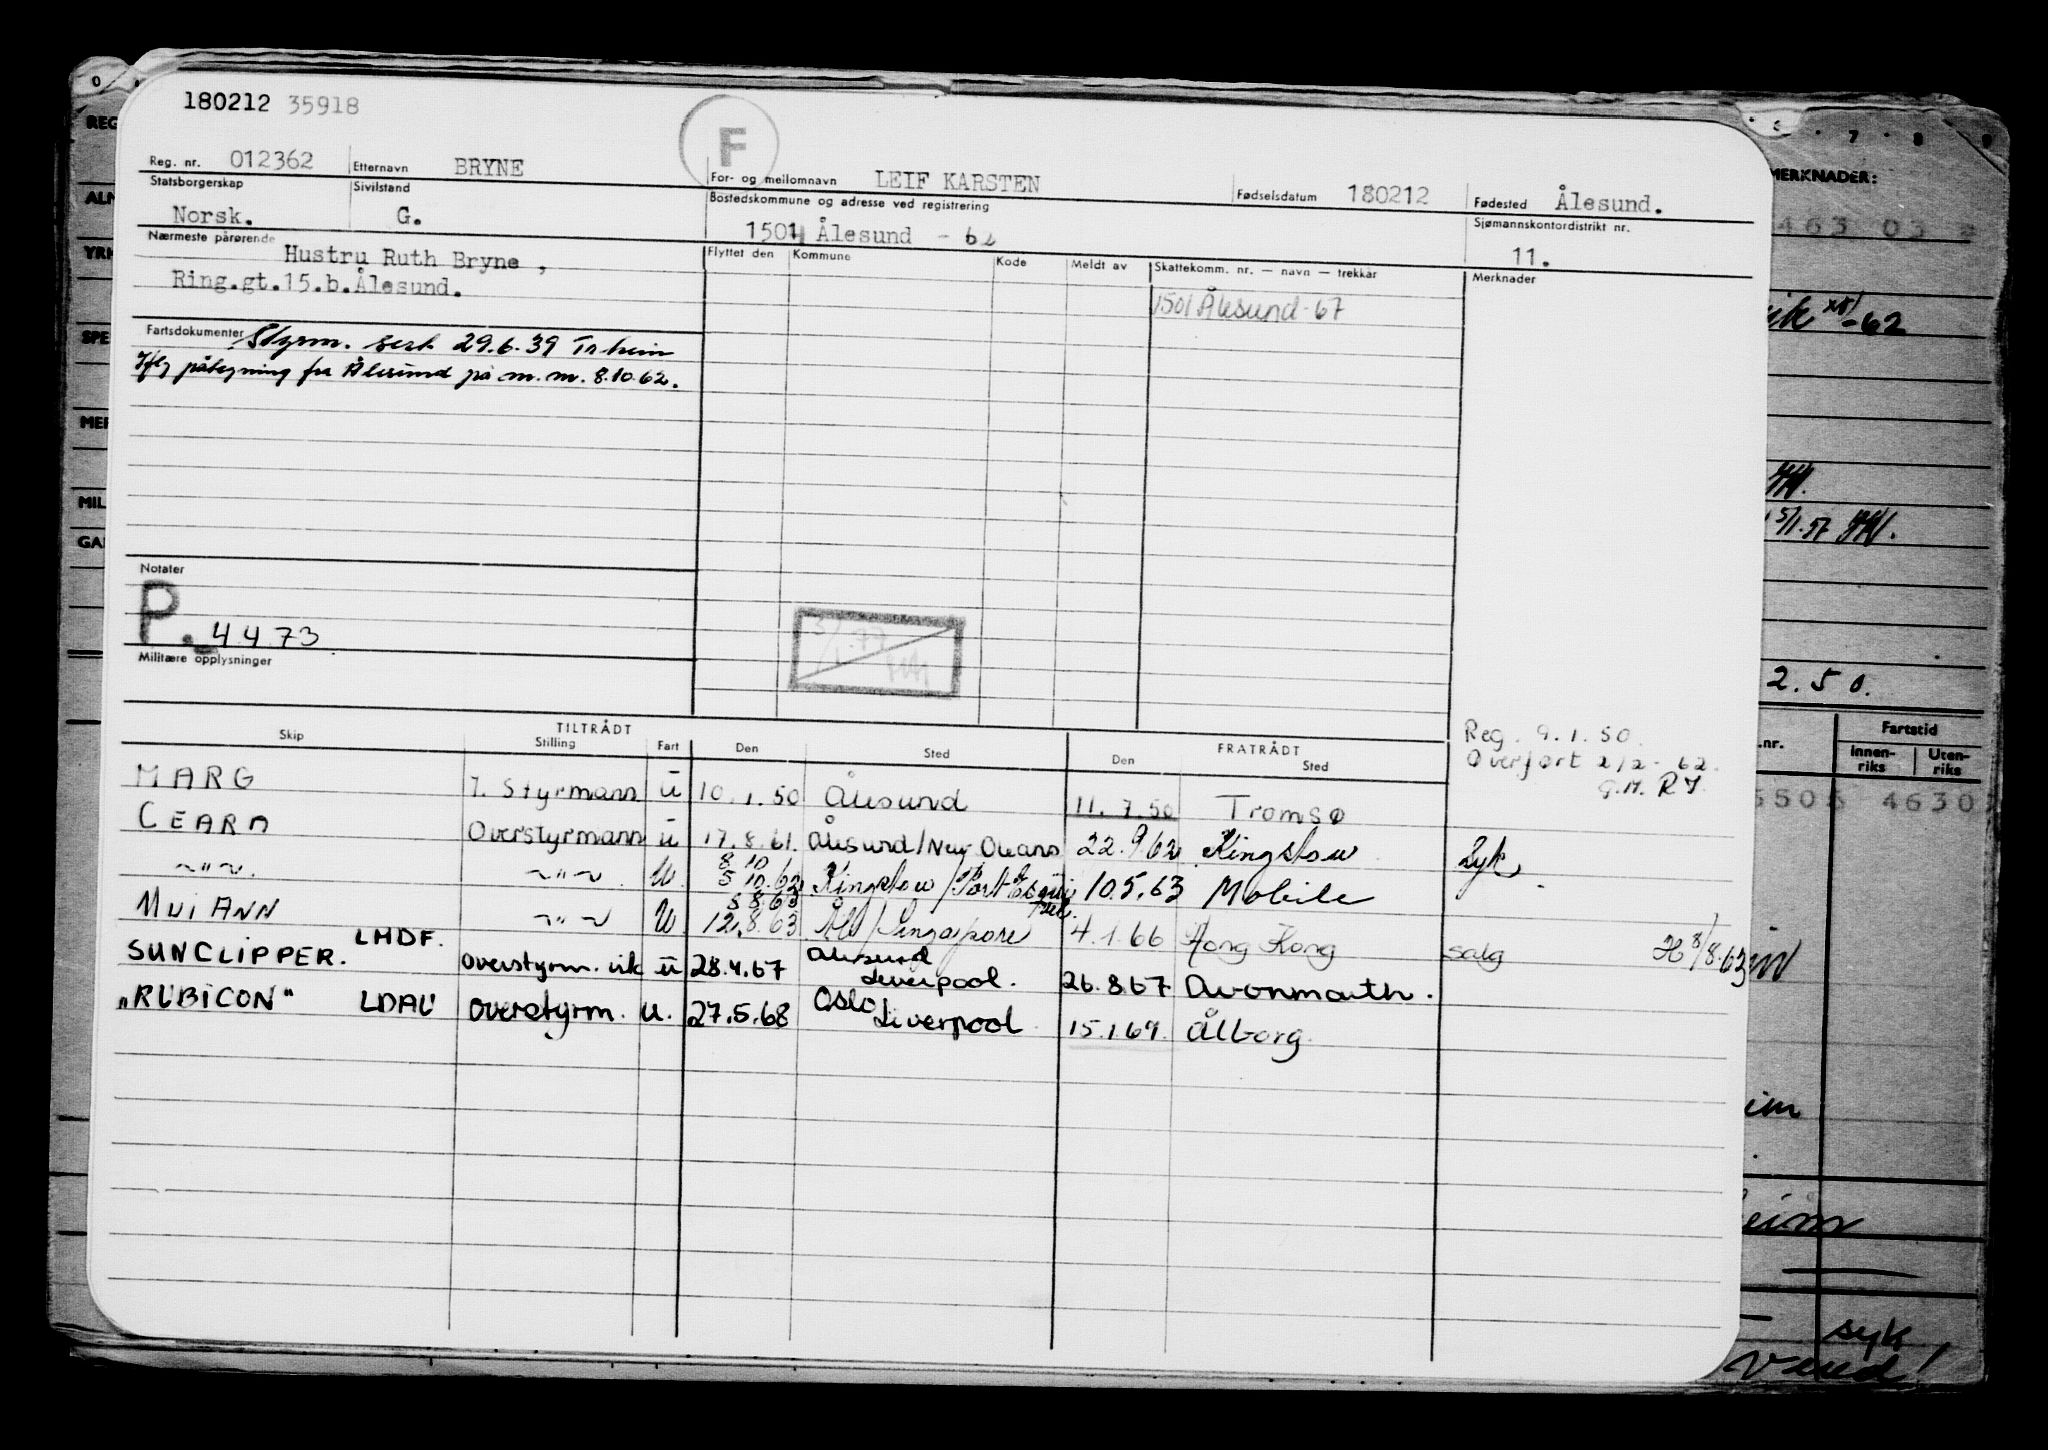 180212 35918
F
Reg. nr. 012362 Etternavn BRYNE For- og mellomnavn LEIF KARSTEN Fødselsdatum 180212 Fødested Ålesund.
Statsborgerskap Norsk. Sivilstand G. Bostedskommune og adresse ved registrering 1501 Ålesund - 62 Sjømannskontordistrikt nr. 11.
Nærmeste pårørende Hustru Ruth Bryne ,
Ring.gt.15.b.Ålesund.
Flyttet den Kommune Kode Meldt av Skattekomm. nr. — navn — trekkår Merknader
1501 Ålesund - 67
Fartsdokumenter Styrm. sert 29.6.39 Tr.heim
påtegning fra Ålesund på m.m. 8.10.62.
Notater
P. 4.4.73
3/1.77
Militære opplysninger
Reg. 9.1.50.
Overført 2/2 - 62.
G.M. RY
TILTRÅDT FRATRÅDT
Skip Stilling Fart Den Sted Den Sted
MARG 1. Styrmann u 10.1.50 Ålesund 11.7.50 Tromsø
CEARA Overstyrmann u 17.8.61. Ålesund/New Oleans 22.9.62 Kingstow Syk
~"~. ~"~ U. 8.10 5.10.62 Kingstow/Port Esquivel. 10.5.63 Mobile
MUI ANN ~"~ U 5.8.63 12.8.63 Åls/Singapore 4.1.66 Hong Kong salg 8/8.63
SUNCLIPPER. LHDF. overstyrm. vik u 28.4.67 Ålesund Liverpool. 26.8.67 Avonmouth.
"RUBICON" LDAU overstyrm. u. 27.5.68 Oslo Liverpool 15.1.69. Ålborg.
0
REG
ALM
YRK
SPE
MER
MIL
GA
6 7 8 9
MERKNADER:
463 03
-62
5/1.57
2.50.
.nr. Fartstid
Innen-riks Uten-riks
5505 4630
eim
syk
Vend!